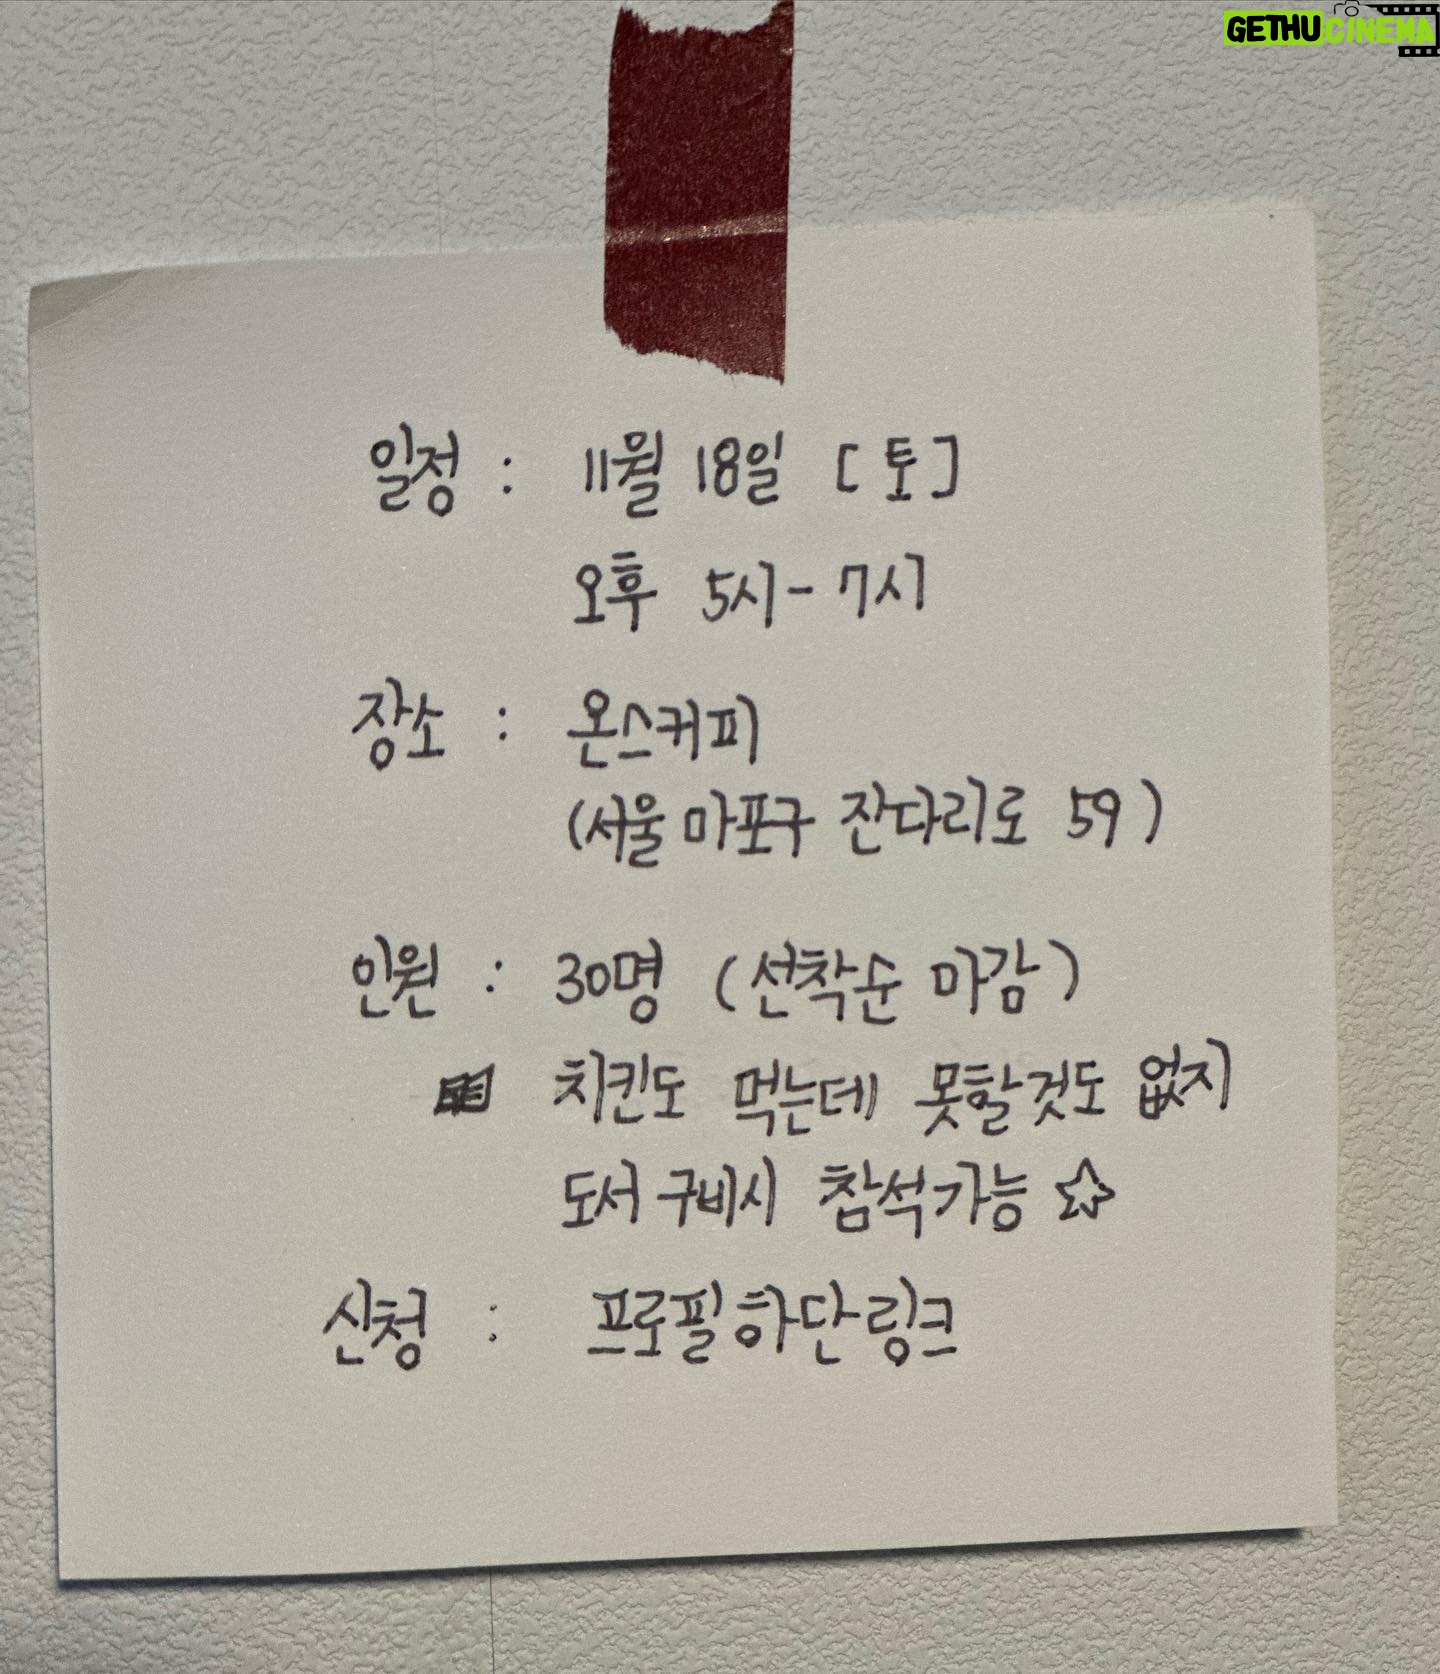 GETHUCINEMA
일정 : 11월 18일 [토]
오후 5시 - 7시
장소 : 온스커피
(서울 마포구 잔다리로 59)
인원 : 30명 (선착순 마감)
치킨도 먹는데 못할것도 없지
도서 구비시 참석가능 ☆
신청 : 프로필 하단 링크